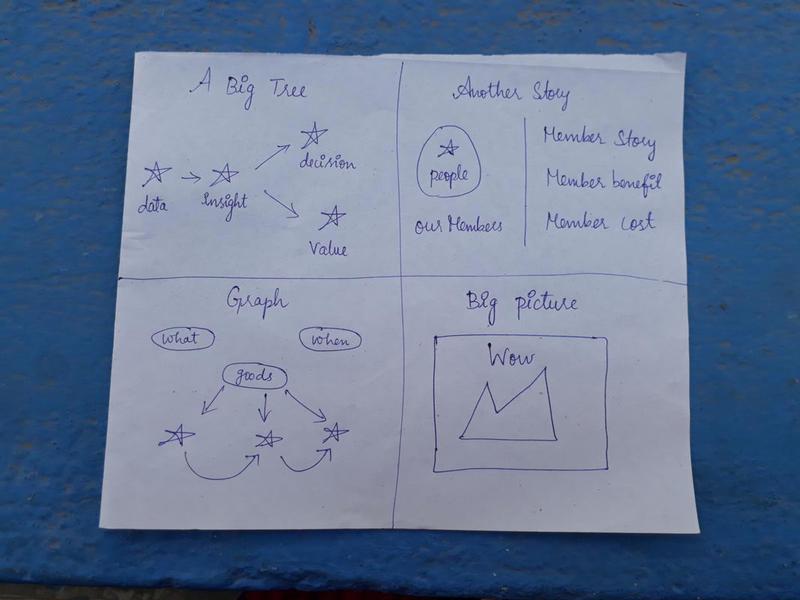 A Big Tree
data
Insight
decision
Value
Another Story
people
our Members
Member Story
Member benefit
Member cost
Graph
what
when
goods
Big picture
Wow